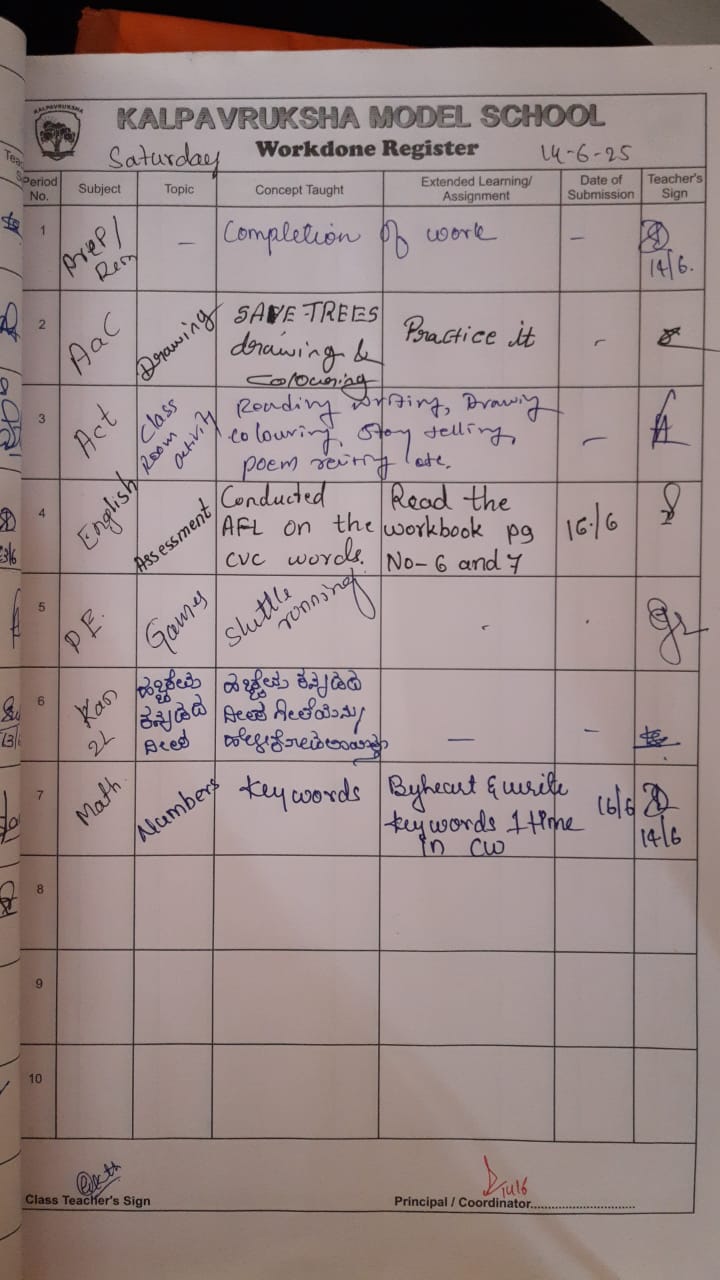 KALPAVRUKSHA
KALPAVRUKSHA MODEL SCHOOL
Saturday Workdone Register 14-6-25
Period No. Subject Topic Concept Taught Extended Learning/ Assignment Date of Submission Teacher's Sign
1 Prep/ Rem – Completion of work – 14/6.
2 AaC Drawing SAVE TREES drawing & colouring Practice it -
3 Act Class Room activity Reading writing, Drawing colouring, story telling, poem reciting etc. –
4 English Assessment Conducted AFL on the CVC words. Read the workbook pg No- 6 and 7 16/6
5 P.E. Games Shuttle running - .
6 Kan 2L ಹಚ್ಚೇವು ಕನ್ನಡದ ದೀಪ ಹಚ್ಚೇವು ಕನ್ನಡದ ದೀಪ ಗೀತೆಯನ್ನು — –
7 Math Numbers Key words Byheart & write key words 1 time in CW 16/6 14/6
8
9
10
Class Teacher's Sign Principal / Coordinator............................ 14/6